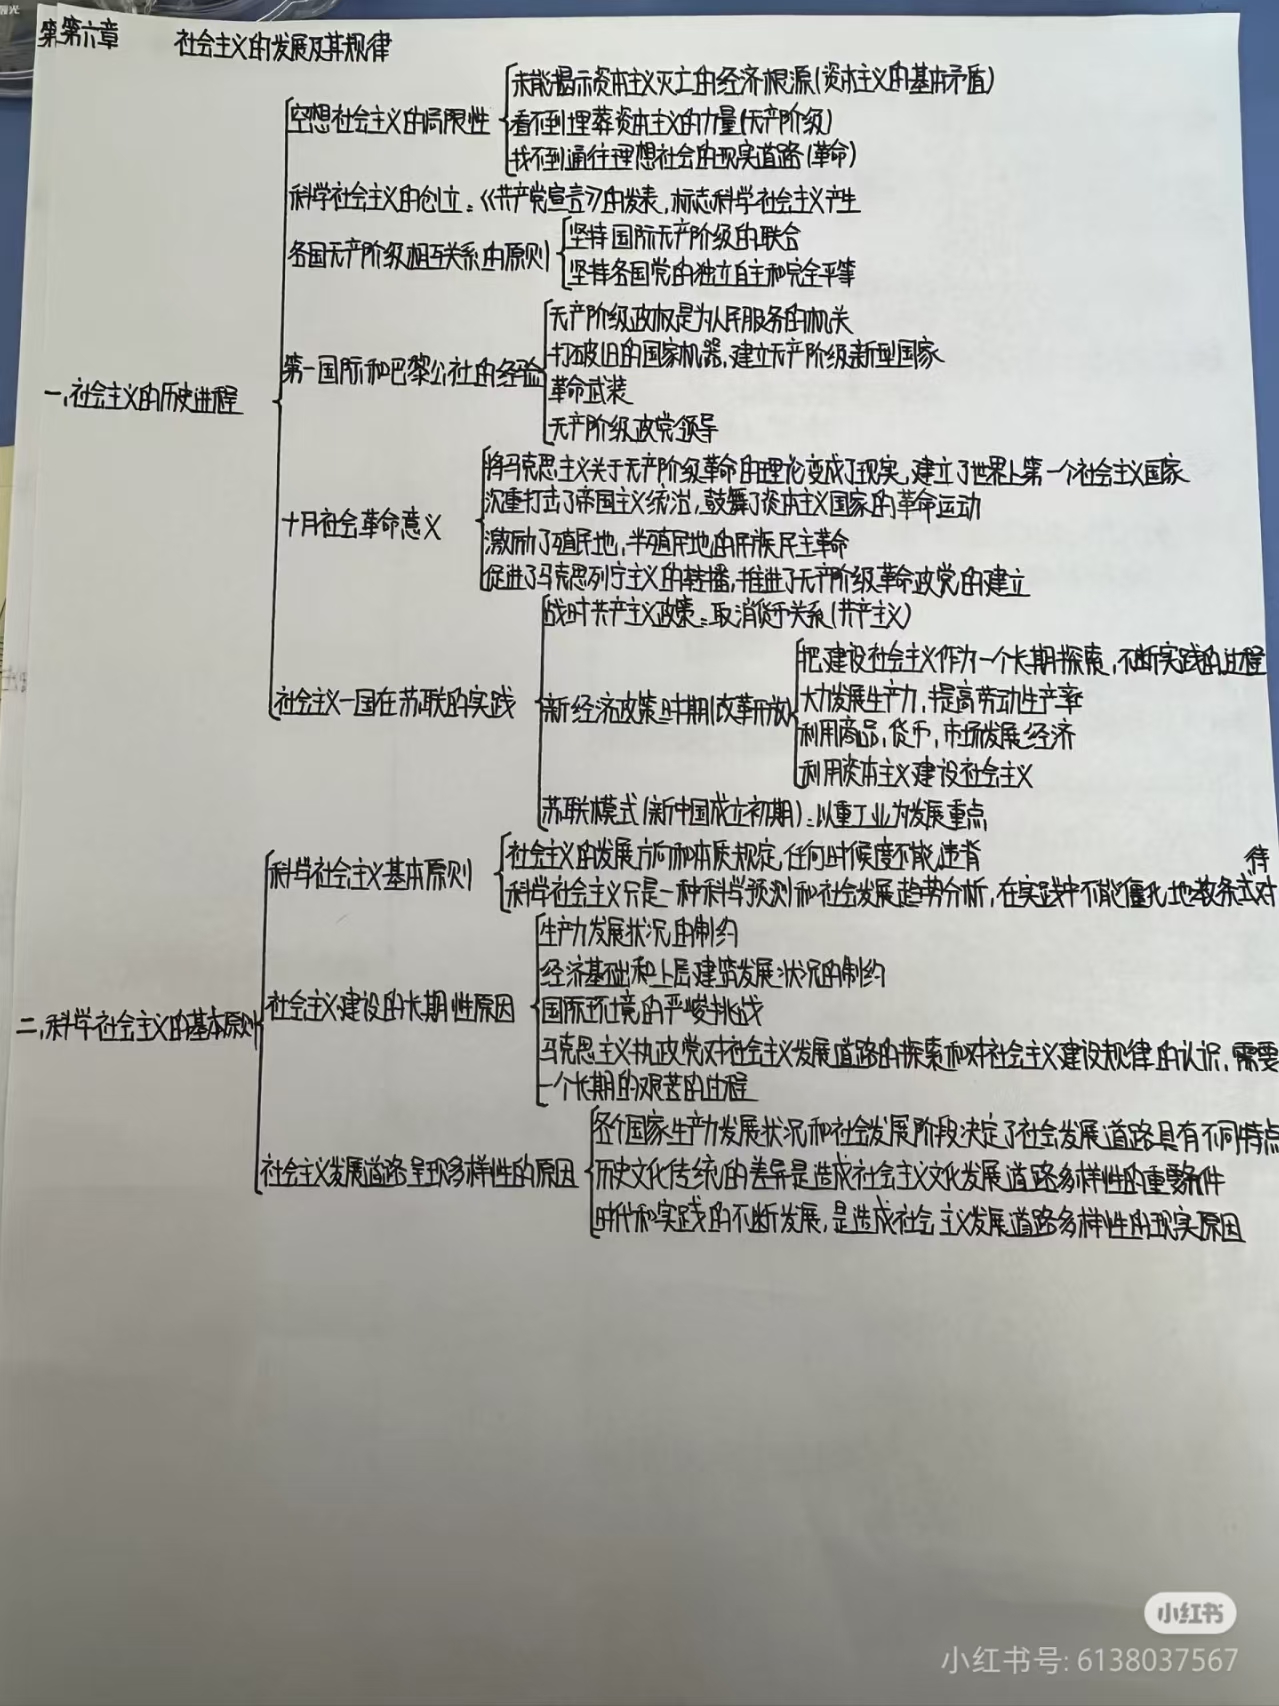 第六章 社会主义的发展及其规律
一、社会主义的历史进程
空想社会主义的局限性
未能揭示资本主义灭亡的经济根源(资本主义的基本矛盾)
看不到埋葬资本主义的力量(无产阶级)
找不到通往理想社会的现实道路(革命)
科学社会主义的创立:《共产党宣言》的发表,标志科学社会主义产生
各国无产阶级相互关系的原则
坚持国际无产阶级的联合
坚持各国党的独立自主和完全平等
第一国际和巴黎公社的经验
无产阶级政权是为人民服务的机关
打破旧的国家机器,建立无产阶级新型国家
革命武装
无产阶级政党领导
十月社会革命意义
将马克思主义关于无产阶级革命的理论变成了现实,建立了世界上第一个社会主义国家
沉重打击了帝国主义统治,鼓舞了资本主义国家的革命运动
激励了殖民地,半殖民地的民族民主革命
促进了马克思列宁主义的转播,推进了无产阶级革命政党的建立
社会主义一国在苏联的实践
战时共产主义政策:取消货币关系(共产主义)
新经济政策时期(改革开放)
把建设社会主义作为一个长期探索,不断实践的过程
大力发展生产力,提高劳动生产率
利用商品,货币,市场发展经济
利用资本主义建设社会主义
苏联模式(新中国成立初期):以重工业为发展重点
二、科学社会主义的基本原则
科学社会主义基本原则
社会主义的发展方向和本质规定,任何时候度不能违背
科学社会主义只是一种科学预测和社会发展趋势分析,在实践中不能僵化地教条式对待
社会主义建设的长期性原因
生产力发展状况的制约
经济基础和上层建筑发展状况的制约
国际环境的严峻挑战
马克思主义执政党对社会主义发展道路的探索和对社会主义建设规律的认识,需要
一个长期的艰苦的过程
社会主义发展道路呈现多样性的原因
各个国家生产力发展状况和社会发展阶段决定了社会发展道路具有不同特点
历史文化传统的差异是造成社会主义文化发展道路多样性的重要条件
时代和实践的不断发展,是造成社会主义发展道路多样性的现实原因
小红书
小红书号: 6138037567